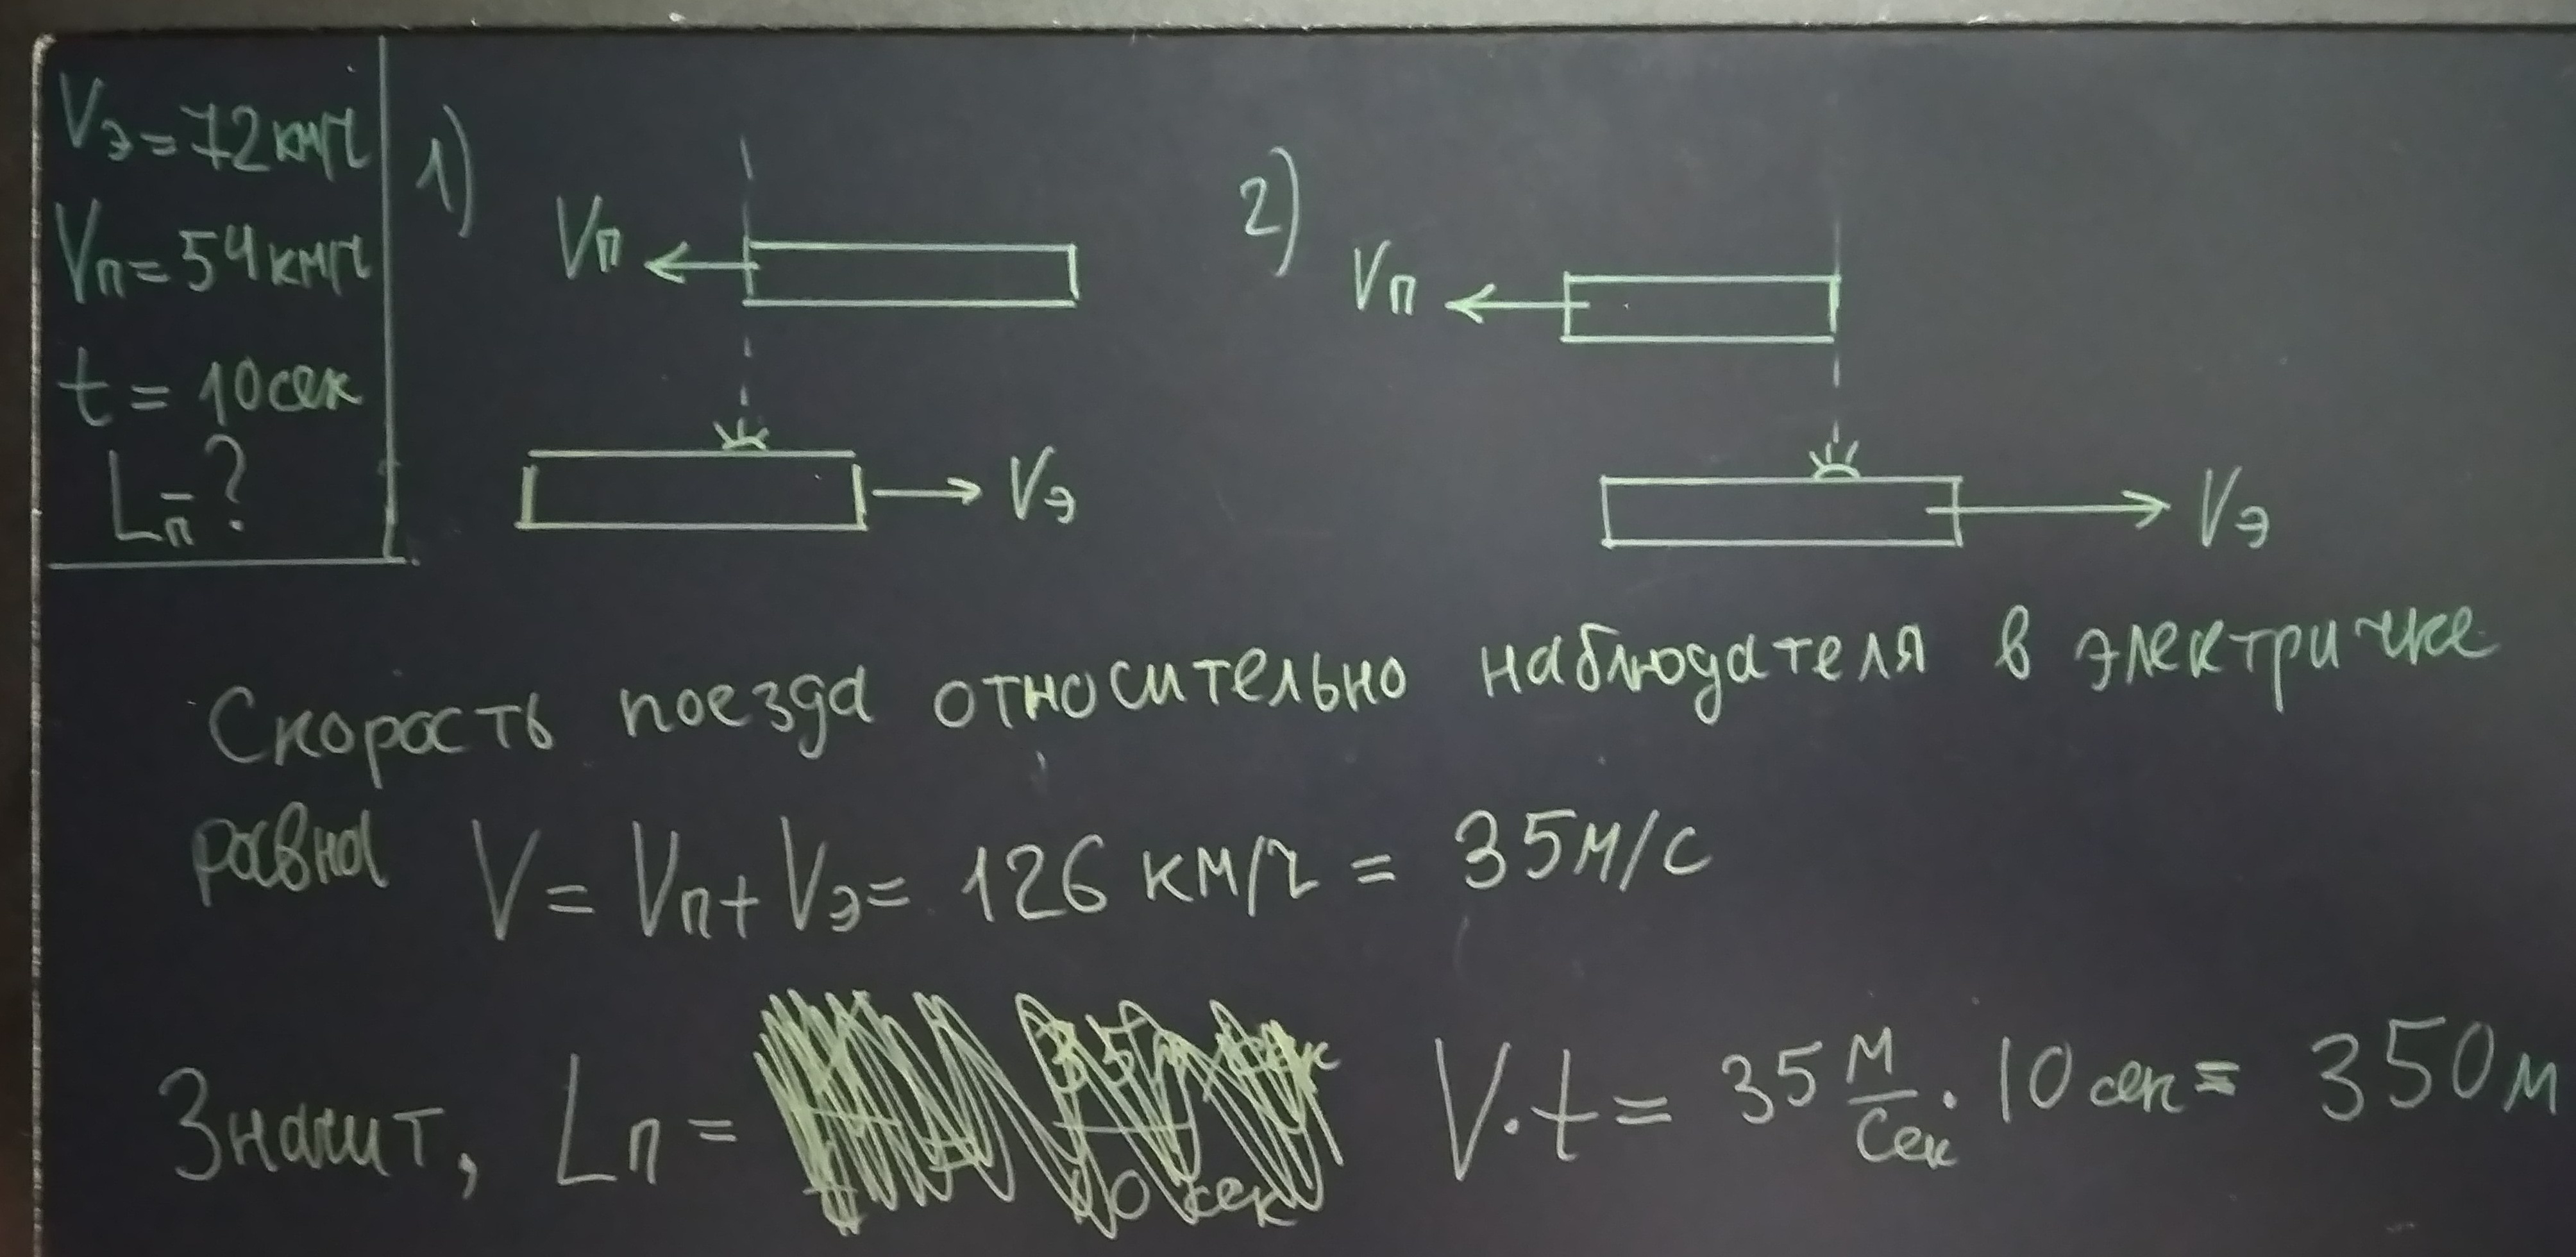 Vэ = 72 км/ч
Vп = 54 км/ч
t = 10 сек
Lп - ?
1)
Vп
Vэ
2)
Vп
Vэ
Скорость поезда относительно наблюдателя в электричке
равна V = Vп + Vэ = 126 км/ч = 35 м/с
Значит, Lп = V · t = 35 м/сек · 10 сек = 350 м